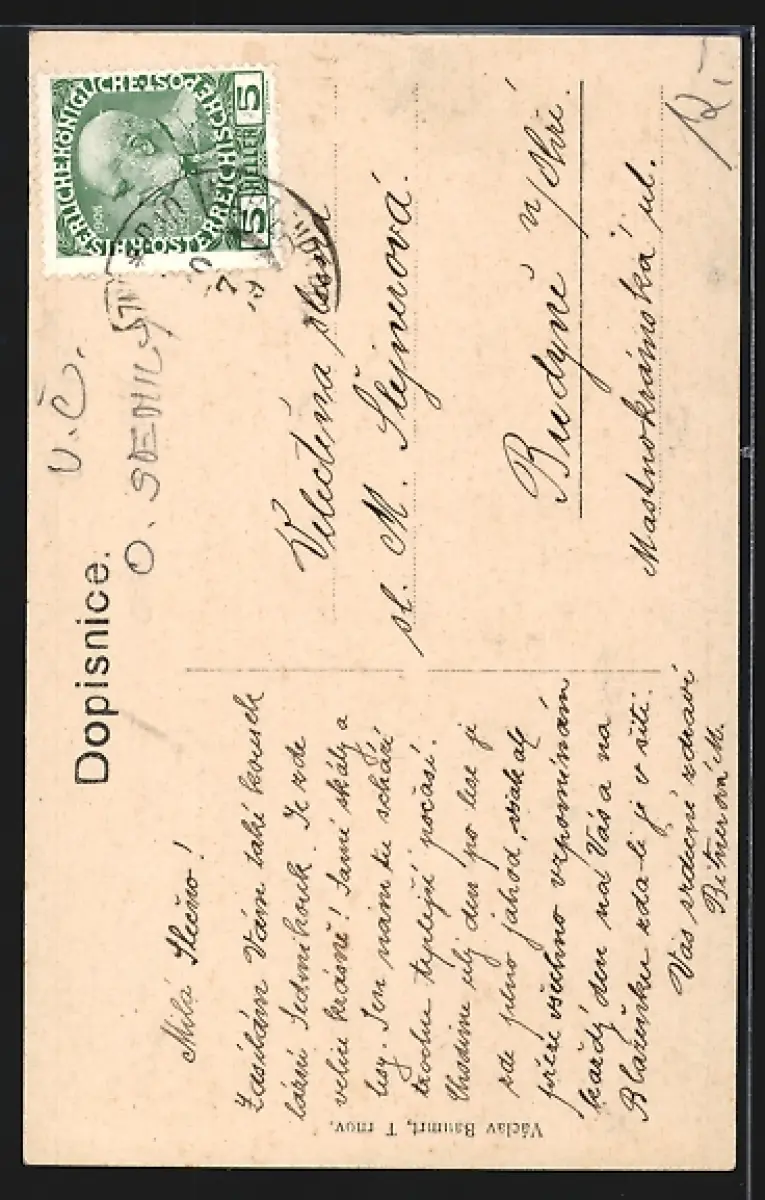 Dopisnice.
V.Č.
O. SEMILY
KAISERLICHE KÖNIGLICHE ÖSTERREICHISCHE POST
5 HELLER 5
1908
Milá Slečno!
Zasílám Vám také kousek
lázní Sedmihorek. Je zde
velice krásně! Samé skály a
lesy. Jen nám zde schází
trochu teplejší počasí.
Chodíme celý den po lese je
zde plno jahod, však při
přese všechno vzpomínám
každý den na Vás a na
Blaženku zda-li je v sítí.
Vás srdečně zdraví
Bitnerová M.
Velectěná slečna
sl. M. Šlejnerová
Budyně n/Ohří.
Mastnokrámská ul.
Václav Baumrt, T rnov.